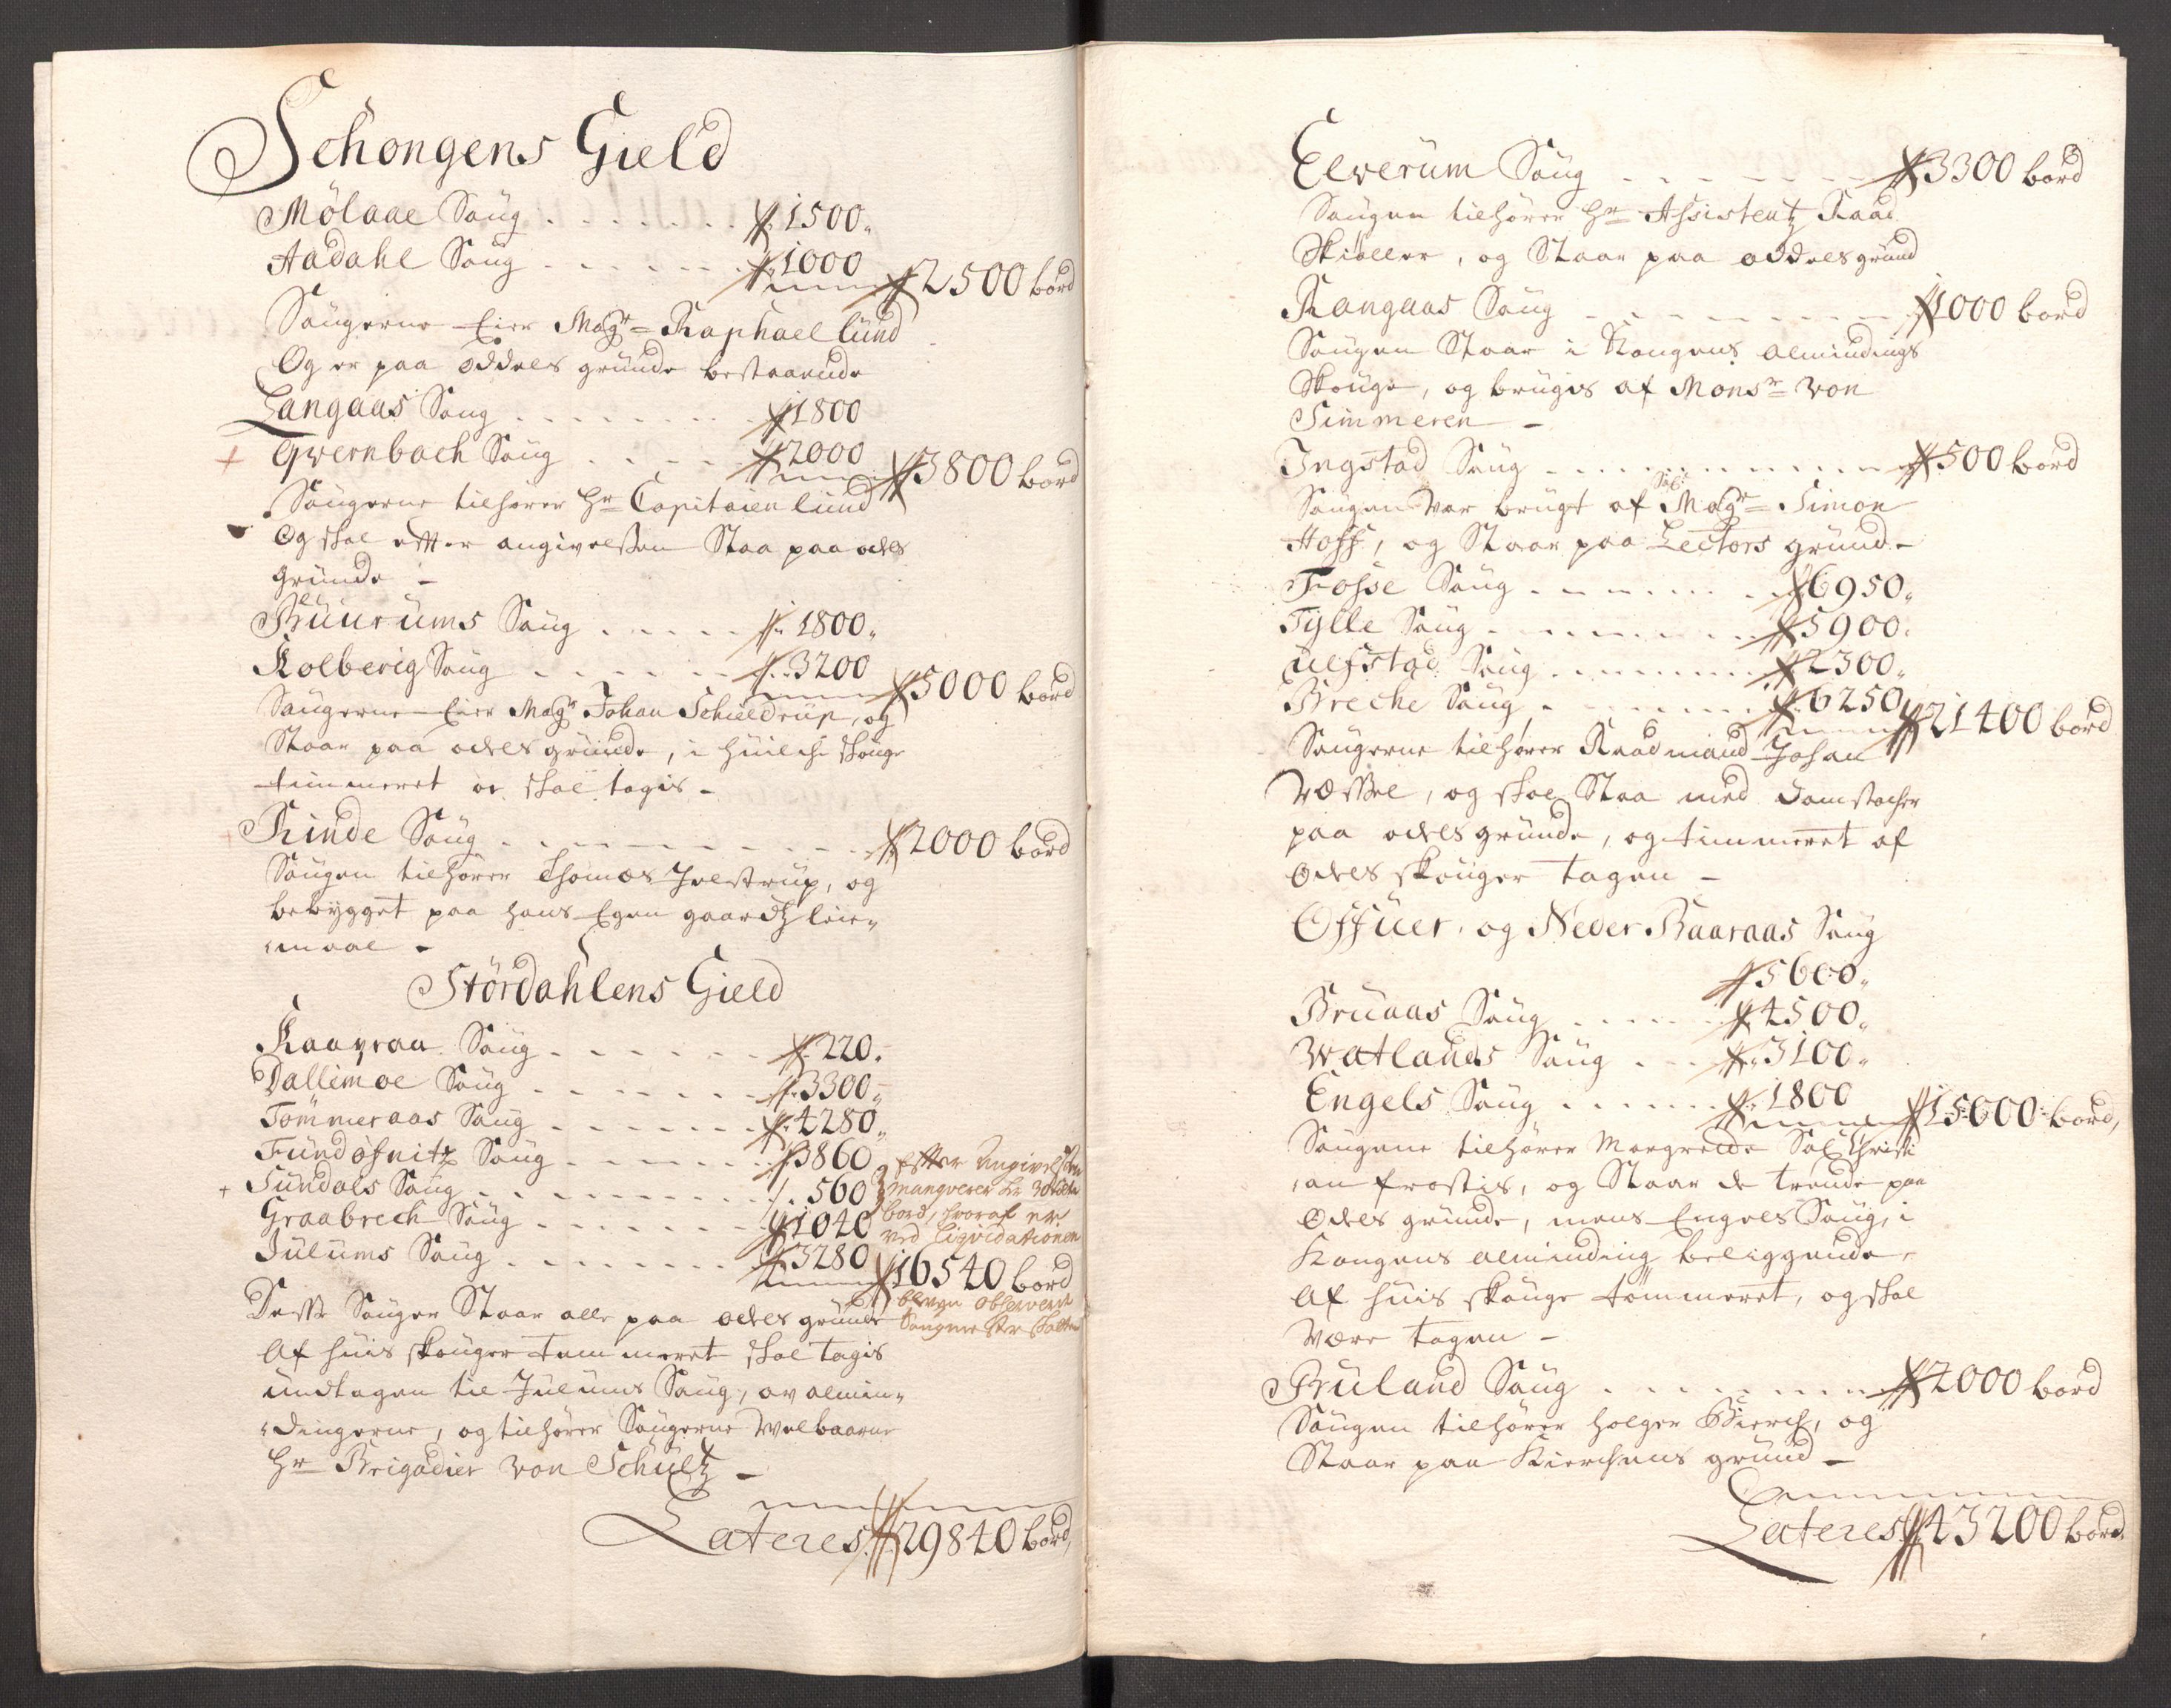 Schongens Gield
Mölaae Saug . . . . . . 1500„
Aadahl Saug . . . . . . 1000
2500 bord
Saugerne Eier Magr= Raphael Lund
Og er paa oddels grunde bestaaende
Langaas Saug . . . . . . 1800
+ Qvernbach Saug . . . . 2000
3800 bord
Saugerne tilhører Hr Capitaien Lund
Og skal efter angivelsen Staa paa odels
grunde -
Buurums Saug . . . . . 1800„
Kolberig Saug . . . . . . 3200
5000 bord
Saugerne Eier Magr Johan Schieldrup, og
Staar paa odels grunde, i huilche skouge
timmeret er skal tagis -
Rinde Saug . . . . . . . . . 2000 bord
Saugen tilhører Thomas Jelstrup, og
bebygget paa hans Egen gaardtz leie„
„maal -
Stördahlens Gield
Raavraa Saug . . . . . . 220„
Dallimoe Saug . . . . . . 3300„
Tommeraas Saug . . . . . . 4280„
Fundosnitz Saug . . . . . 3860
+ Sundals Saug . . . . . . . . 560
Graabrech Saug . . . . . . 1040
Julums Saug . . . . . . . 3280
Efter Angivelsen
manqverer
bord, hvoraf er
ved Liqvidationen
16540 bord
bleven observeret
Saugmester
Desse Sauger Staar alle paa odels grunde
Af huis skouger tømmeret skal tagis
undtagen til Julums Saug, av almin„
„dingerne, og tilhører Saugerne Welbaarne
Hr Brigadier von Schultz -
Lateres 29840 bord,
Elverum Saug . . . . . . . 3300 bord
Saugen tilhører Hr Assistentz Raad
Skiøller, og Staar paa oddels grund
Rangaas Saug . . . . . . . . 1000 bord
Saugen Staar i Kongens almindings
Skouge, og brugis af Monsr= von
Timmeren -
Ingstad Saug . . . . . . . . . . 500 bord
Saugen Var brugt af Sal: Magr= Simon
Hoff, og Staar paa Lectors grund -
Fosse Saug . . . . . . . . 6950„
Tylle Saug . . . . . . . . 5900„
Uelfstad Saug . . . . . . . 2300„
Breche Saug . . . . . . . 6250
21400 bord
Saugerne tilhører Raadmand Johan
Wessel, og skal Staa med damstocher
paa odels grunde, og timmeret af
Odels skouger tagen -
Offuer og Neder Baaraas Saug
5600„
Bruaas Saug . . . . . 4500„
Watlands Saug . . . 3100„
Engels Saug . . . . . . 1800
15000 bord,
Saugene tilhører Margrete Sal Christi
„an frostis, og Staar de trende paa
Odels grunde, mens Engels Saug, i
Kongens alminding beliggende,
Af huis skouge tömmeret, og skal
Være tagen -
Ruland Saug . . . . . . . . 2000 bord
Saugen tilhører Holger Bierch, og
Staar paa Kierchens grund -
Lateres 43200 bord